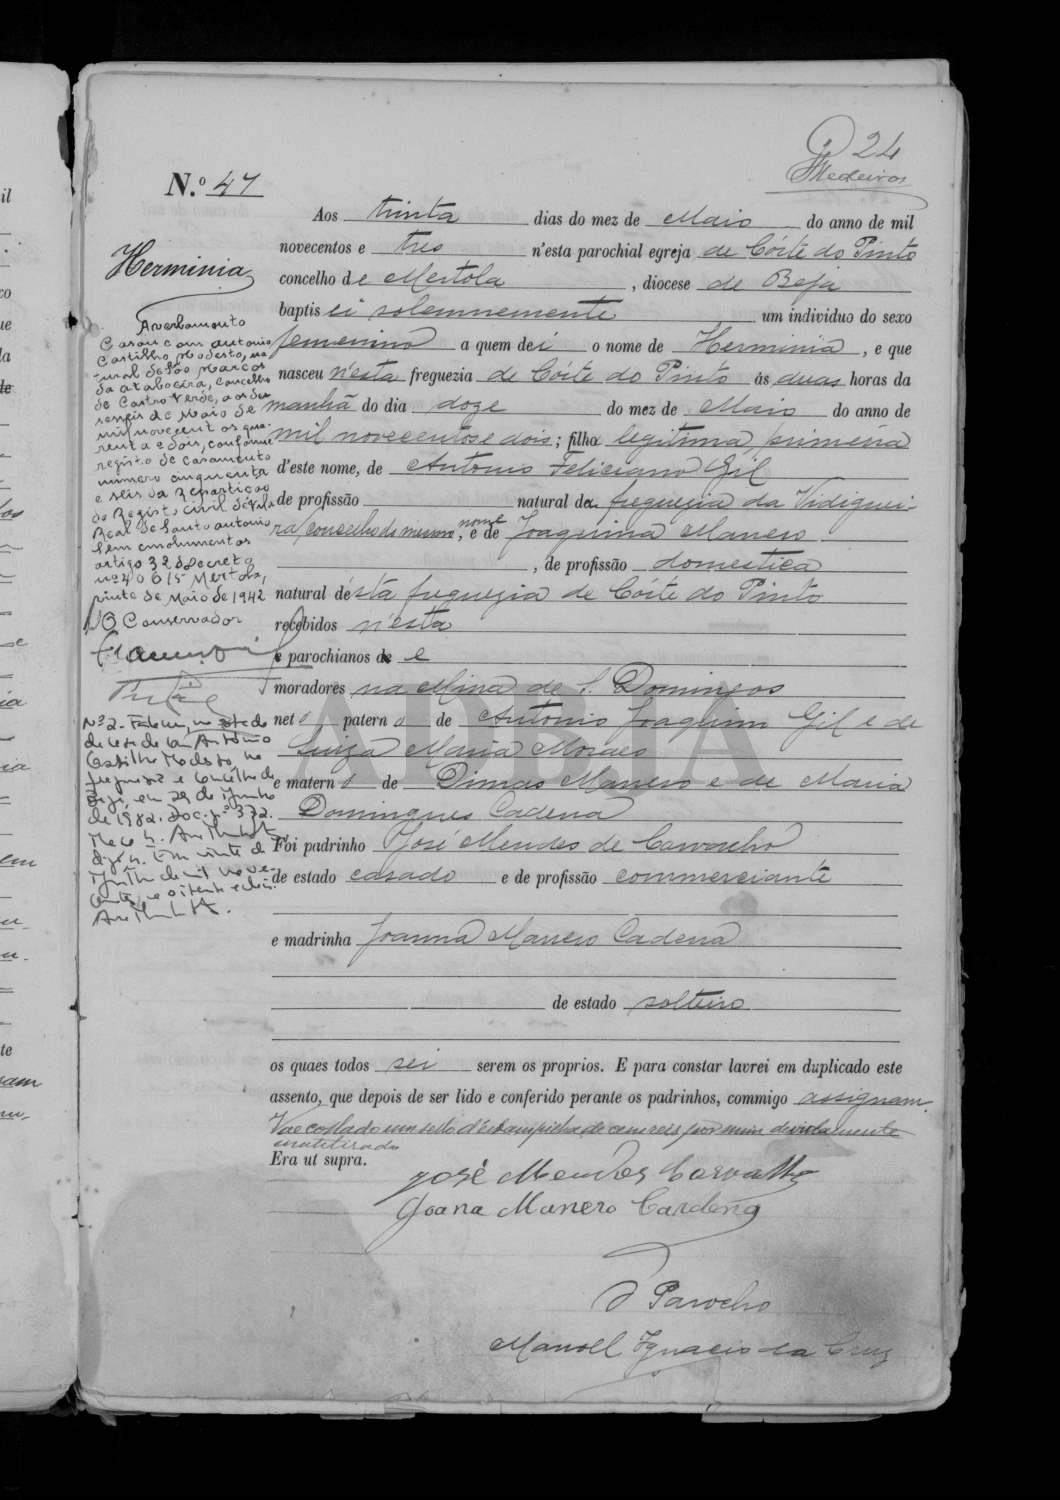 24
Medeiros
N.º 47
Herminia
Aos trinta dias do mez de Maio do anno de mil
novecentos e tres n'esta parochial egreja de Córte do Pinto
concelho de Mertola, diocese de Beja
baptisei solemnemente um individuo do sexo
femenino a quem dei o nome de Herminia, e que
nasceu n'esta freguezia de Córte do Pinto ás duas horas da
manhã do dia doze do mez de Maio do anno de
mil novecentos e dois; filha legitima, primeira
d'este nome, de Antonio Feliciano Gil
de profissão natural da freguezia da Vidiguei-
ra, concelho do mesmo nome, e de Joaquina Manero
, de profissão domestica
natural d'esta freguezia de Córte do Pinto
recebidos n'esta
e parochianos de e
moradores na Mina de S. Domingos
neta paterna de Antonio Joaquim Gil e de
Luiza Maria Moraes
e materna de Dimas Manero e de Maria
Domingues Cadena
Foi padrinho José Mendes de Carvalho
de estado casado e de profissão commerciante
e madrinha Joanna Manero Cadena
de estado solteira
os quaes todos sei serem os proprios. E para constar lavrei em duplicado este
assento, que depois de ser lido e conferido perante os padrinhos, commigo assignam.
Vae collado um sello d'estampilha de cem reis por mim devidamente
inutilizado
Era ut supra.
José Mendes Carvalho
Joana Manero Cardena
O Parocho
Manoel Ignacio da Cruz
Averbamento
Casou com Antonio
Castilho Modesto, na
tural de São Marcos
da Ataboeira, concelho
de Castro Verde, aos de
seseis de Maio de
mil novecentos qua-
renta e dois, conforme
registo de casamento
número cinquenta
e seis da Repartição
do Registo Civil de Vila
Real de Santo Antonio
Sem emolumentos
artigo 32 decreto
nº 40615 Mertola,
vinte de Maio de 1942
O Conservador
Nº 2 - Faleceu no estado
de de António
Castilho Modesto, na
freguesia e concelho de
Beja, em 29 de Junho
de 1982. Doc. nº 372.
ADBJA